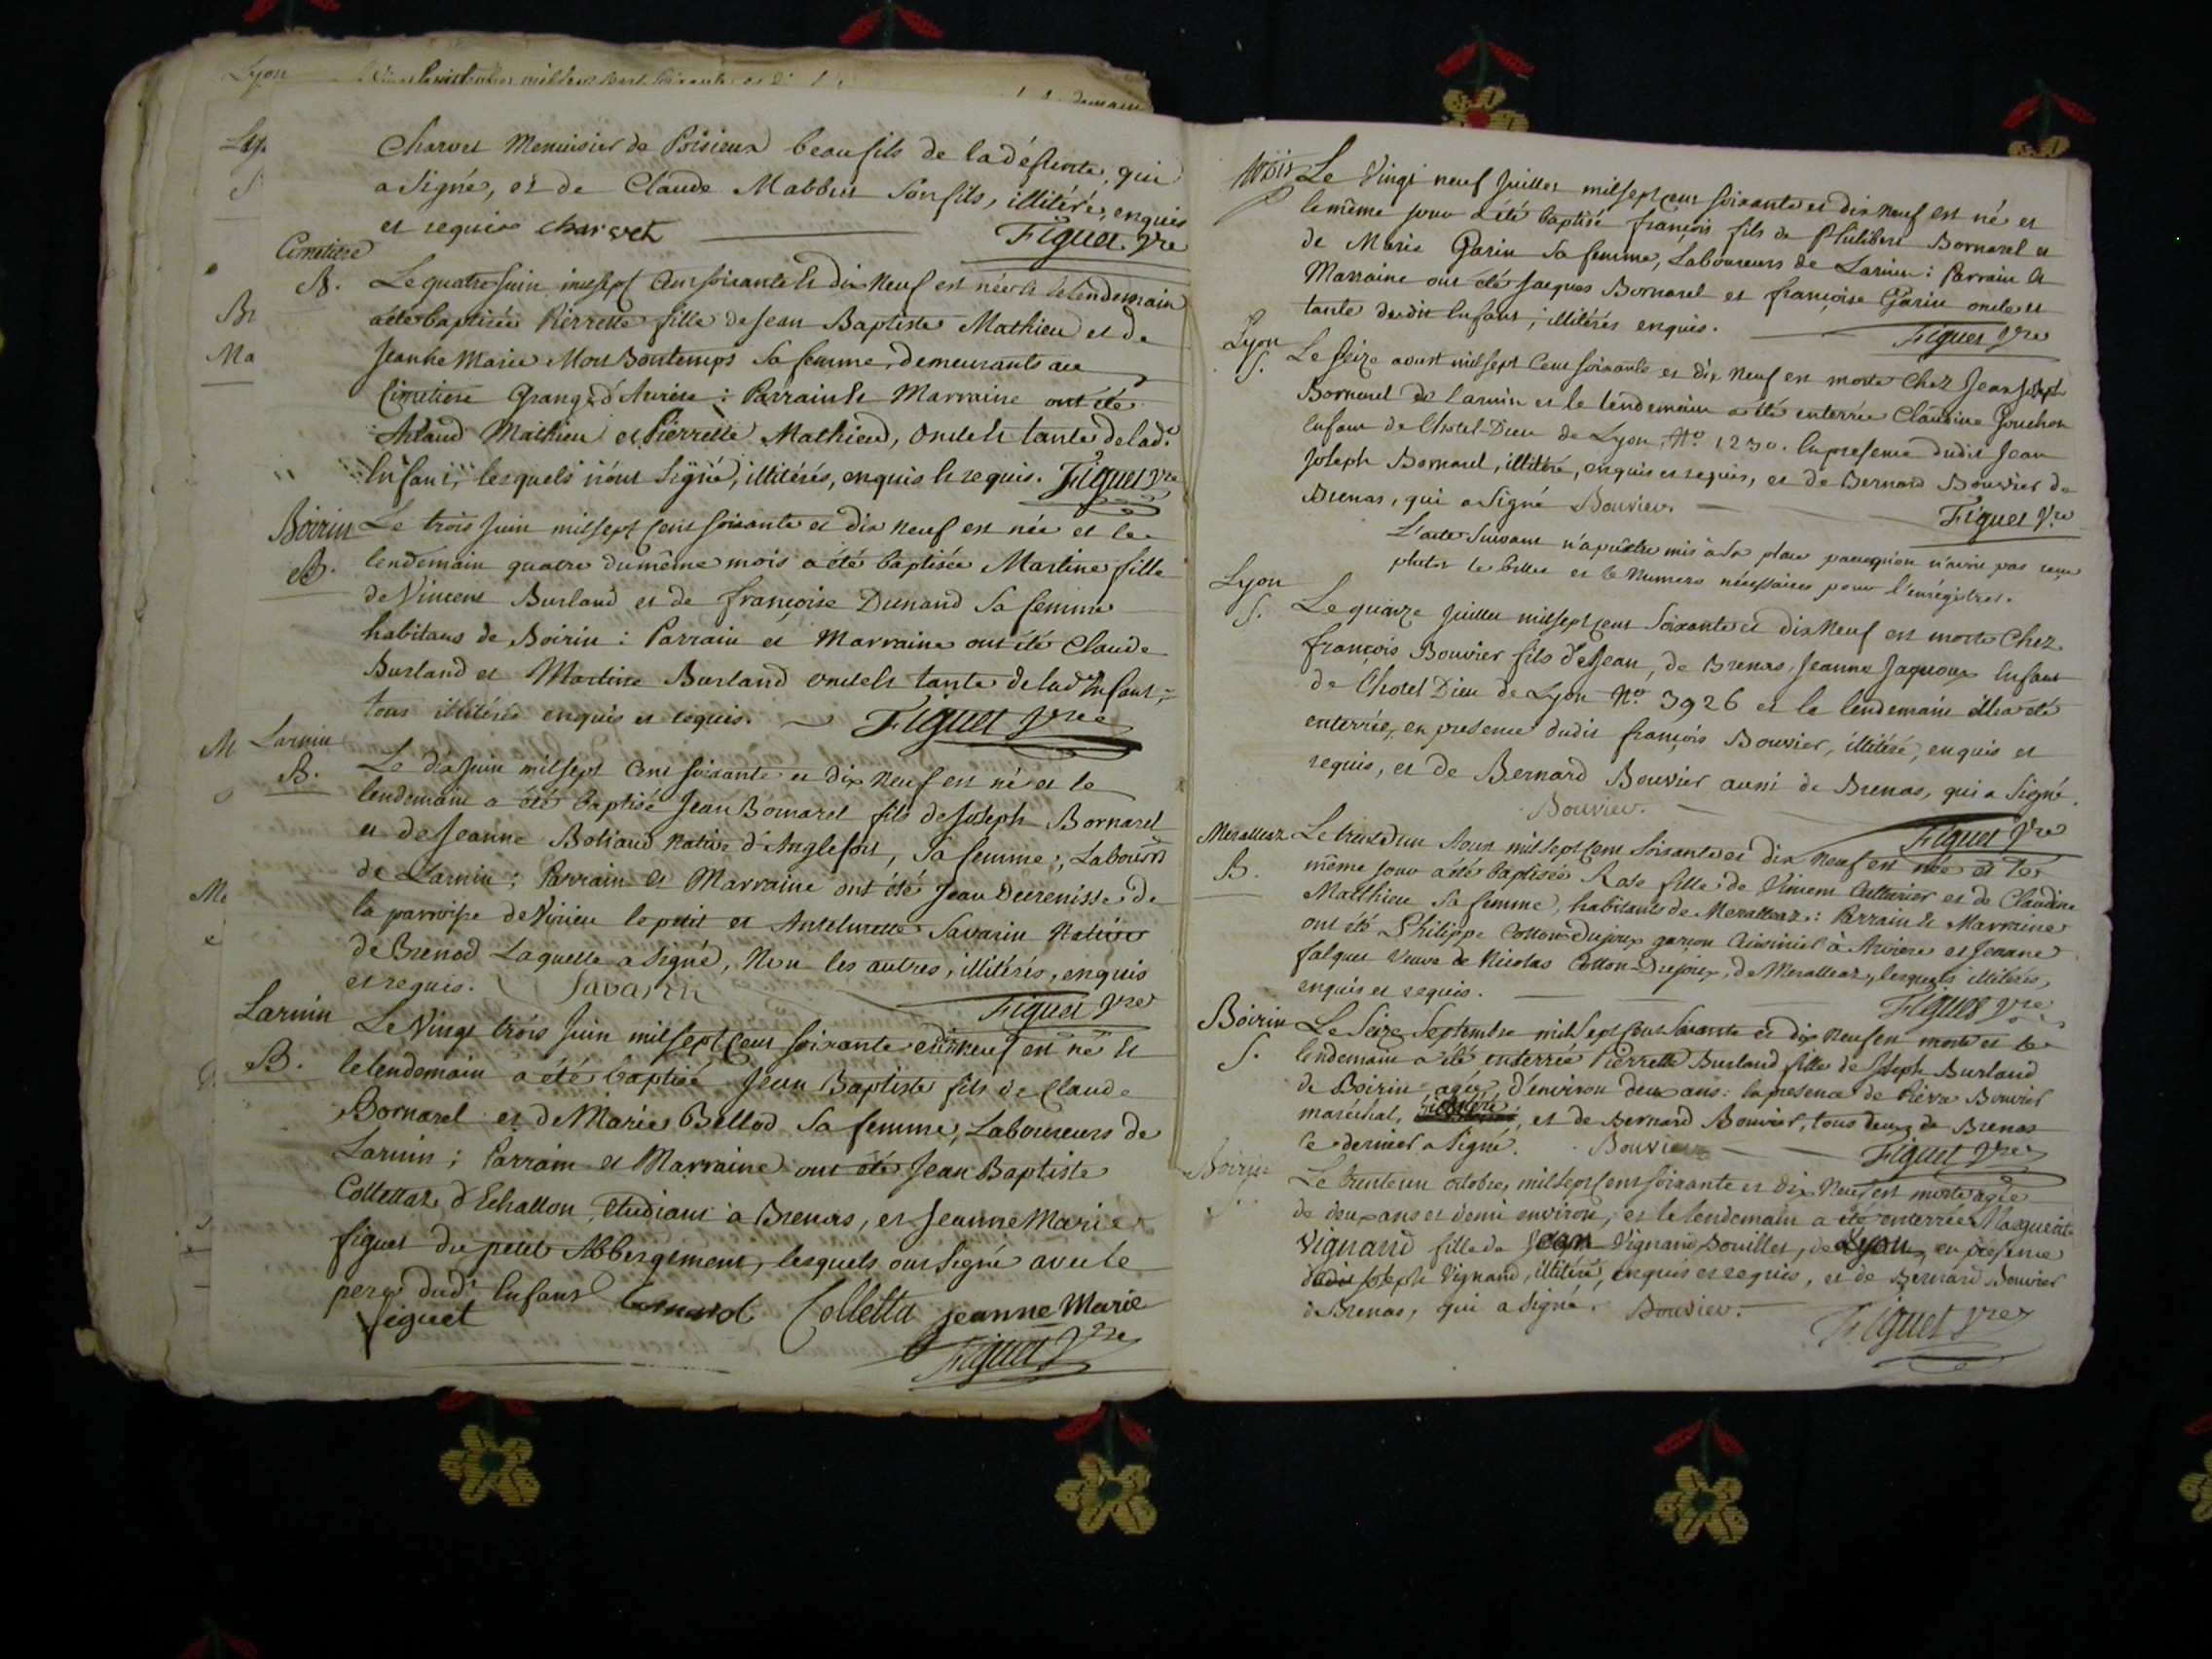 Lyon
demain
Lyo
S
Br
Ma
M
Charvet Menuisier de Poisieux beaufils de la défunte, qui
a signé, et de Claude Mabbut son fils, illitéré, enquis
et requis charvet Figuet Vre
Cimetiere
B.
Le quatre juin milsept Cent soixante & dix neuf est née & le lendemain
a été baptisée Pierrette fille de Jean Baptiste Mathieu et de
Jeanne Marie Bontemps sa femme, demeurants au
Cimetiere Grange d'Arviere : Parrain & Marraine ont été
Mathieu et Pierrette Mathieu, oncle & tante de lad.e
Enfant, lesquels n'ont signé, illitérés, enquis & requis. Figuet Vre
Boirin
B.
Le trois Juin milsept Cent soixante et dix neuf est née et le
lendemain quatre du même mois a été baptisée Martine fille
de Vincent Burland et de françoise Dunand sa femme
habitans de Boirin : Parrain et Marraine ont été Claude
Burland et Martine Burland oncle & tante de lad.e Enfant,
tous illitérés enquis et requis. Figuet Vre
Larnin
B.
Le dix Juin milsept Cent soixante et dix neuf est né et le
lendemain a été baptisé Jean Bornarel fils de Joseph Bornarel
et de Jeanne Boliaud native d'Anglefort, sa femme, Labour.rs
de Larnin ; Parrain et Marraine ont été Jean Decrenisse de
la parroisse de Virieu le petit et Anthelmette Savarin Native
de Brenod Laquelle a signé, Non les autres, illitérés, enquis
et requis. Savarin Figuet Vre
Larnin
B.
Le Vingt trois Juin milsept Cent soixante et dix neuf est né &
le lendemain a été baptisé Jean Baptiste fils de Claude
Bornarel et de Marie Bellod sa femme, Laboureurs de
Larnin ; Parrain et Marraine ont été Jean Baptiste
Collettaz d'Echallon, étudiant à Brenas, et Jeanne Marie
figuet du petit Abbergement, lesquels ont signé avec le
pere dud. Enfant bornarel Colletta jeanne Marie
figuet Figuet Vre
Le Vingt neuf Juillet milsept cent soixante et dix neuf est né et
le même jour a été baptisé françois fils de Philibert Bornarel et
de Marie Garin sa femme, Laboureurs de Larnin : Parrain &
Marraine ont été Jacques Bornarel et françoise Garin oncle et
tante dudit Enfant, illitérés enquis. Figuet Vre
Lyon
S.
Le Seize aoust milsept Cent soixante et dix neuf est morte Chez Jean Joseph
Bornarel de Larnin et le lendemain a été enterrée Claudine Gouchon
Enfant de l'hotel-Dieu de Lyon, No. 1230. En presence dudit Jean
Joseph Bornarel, illitéré, enquis et requis, et de Bernard Bouvier de
Brenas, qui a signé Bouvier. Figuet Vre
L'acte suivant n'a pu être mis à sa place parcequ'on n'avoit pas reçu
plutot le billet et le Numero nécessaires pour l'enrégistrer.
Lyon
S.
Le quinze Juillet milsept cent soixante et dix neuf est morte Chez
françois Bouvier fils de Jean, de Brenas, Jeanne Jaquoux Enfant
de l'hotel Dieu de Lyon No. 3926 et le lendemain elle a été
enterrée, en presence dudit françois Bouvier, illitéré, enquis et
requis, et de Bernard Bouvier aussi de Brenas, qui a signé.
Bouvier. Figuet Vre
Meralleaz
B.
Le trente un Aout milsept cent soixante et dix neuf est née et le
même jour a été baptisée Rose fille de Vincent Cutturier et de Claudine
Matthieu sa femme, habitants de Meralleaz : Parrain & Marraine
ont été Philippe Cotton-Dujoux garçon Cuisinier à Arviere et Jeanne
falquet veuve de Nicolas Cotton-Dujoux, de Meralleaz, lesquels illitérés,
enquis et requis. Figuet Vre
Boirin
S.
Le Seize Septembre milsept Cent soixante et dix neuf est morte et le
lendemain a été enterrée Pierrette Burland fille de Joseph Burland
de Boirin agée d'environ deux ans : En presence de Pierre Bouvier
maréchal, et de Bernard Bouvier, tous deux de Brenas
le dernier a signé. Bouvier Figuet Vre
Boirin
S.
Le trente un octobre, milsept Cent soixante et dix Neuf est morte agée
de deux ans et demi environ, et le lendemain a été enterrée Marguerite
Vignand fille de Jean Vignand Douillet, de Lyon, en presence
dudit Joseph Vignand, illitéré, enquis et requis, et de Bernard Bouvier
de Brenas, qui a signé. Bouvier. Figuet Vre